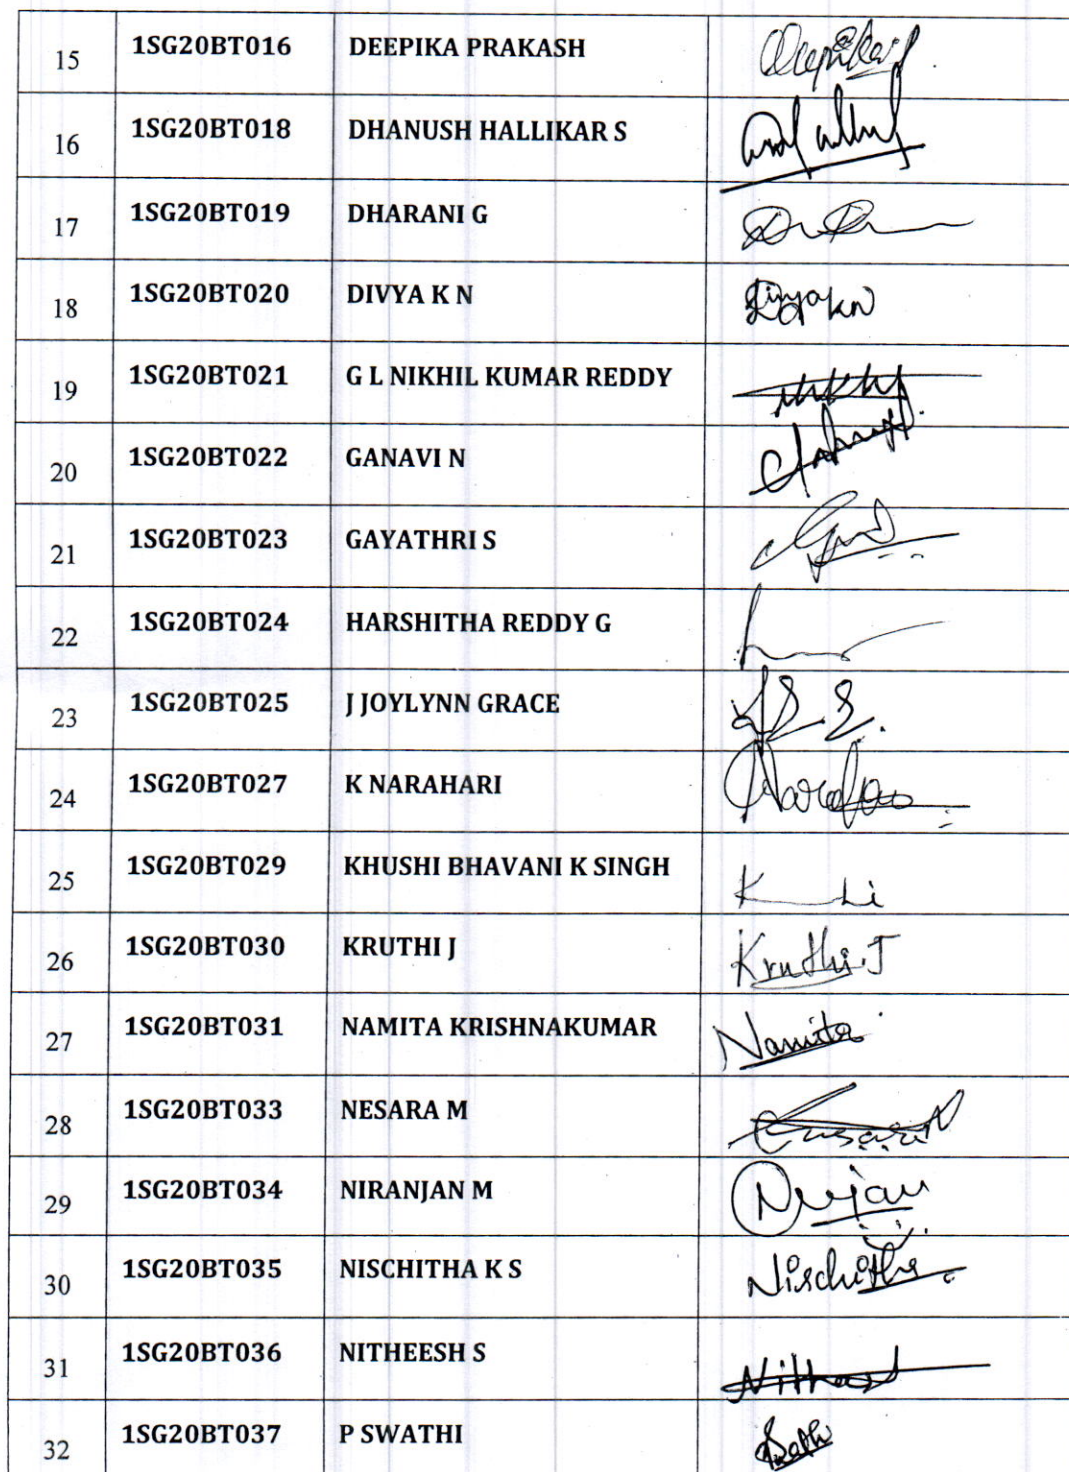 15 1SG20BT016 DEEPIKA PRAKASH
16 1SG20BT018 DHANUSH HALLIKAR S
17 1SG20BT019 DHARANI G
18 1SG20BT020 DIVYA K N Divya KN
19 1SG20BT021 G L NIKHIL KUMAR REDDY
20 1SG20BT022 GANAVI N
21 1SG20BT023 GAYATHRI S
22 1SG20BT024 HARSHITHA REDDY G
23 1SG20BT025 J JOYLYNN GRACE
24 1SG20BT027 K NARAHARI
25 1SG20BT029 KHUSHI BHAVANI K SINGH
26 1SG20BT030 KRUTHI J Kruthi.J
27 1SG20BT031 NAMITA KRISHNAKUMAR Namita
28 1SG20BT033 NESARA M
29 1SG20BT034 NIRANJAN M
30 1SG20BT035 NISCHITHA K S Nischitha
31 1SG20BT036 NITHEESH S
32 1SG20BT037 P SWATHI